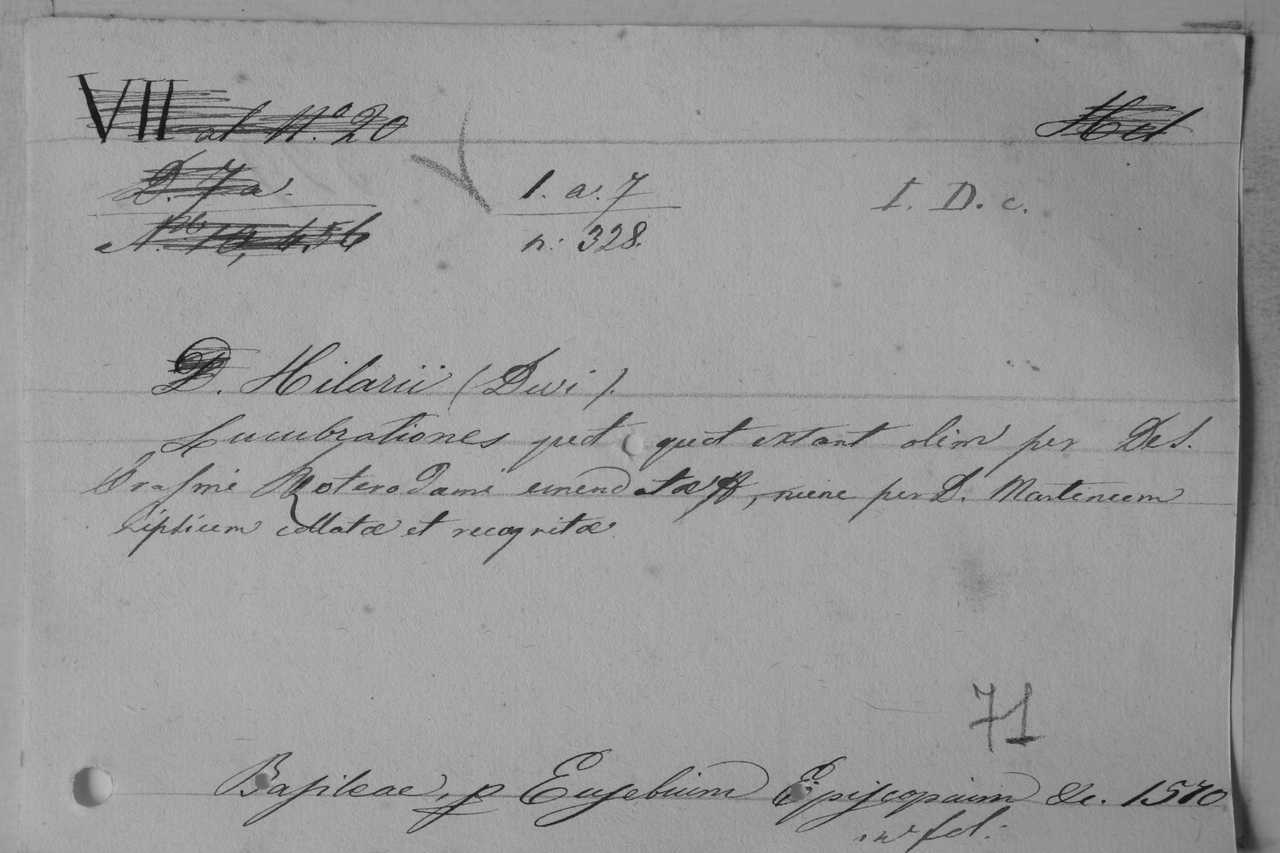 VII al N.º 20
D. 7 a. 1. a. 7 I. D. c.
n: 328.
D. Hilarii (Divi).
Lucubrationes quot quot extant olim per Des.
Erasmi Roterodami emendatæ, nunc per D. Martinum
Lipsium collatæ et recognitæ.
71
Basileae, p Eusebium Episcopium &c. 1570
in fol: